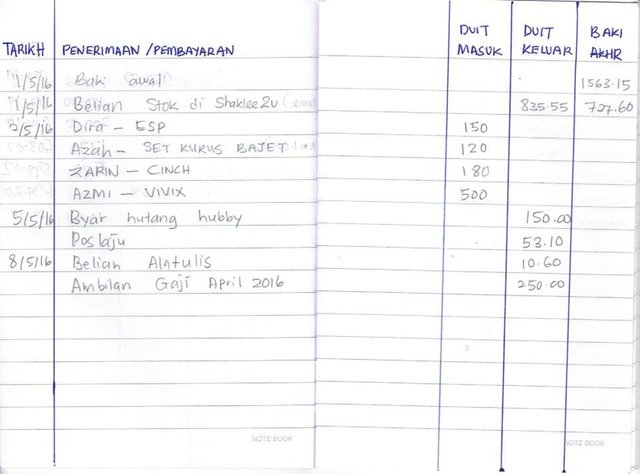 TARIKH PENERIMAAN / PEMBAYARAN DUIT MASUK DUIT KELUAR BAKI AKHR
1/5/16 Baki awal 1563.15
1/5/16 Belian Stok di Shaklee2u 835.55 727.60
2/5/16 Dira - ESP 150
Azah - SET KURUS BAJET 120
ZARIN - CINCH 180
AZMI - VIVIX 500
5/5/16 Byar hutang hubby 150.00
Poslaju 53.10
8/5/16 Belian Alatulis 10.60
Ambilan Gaji April 2016 250.00
NOTE BOOK NOTE BOOK